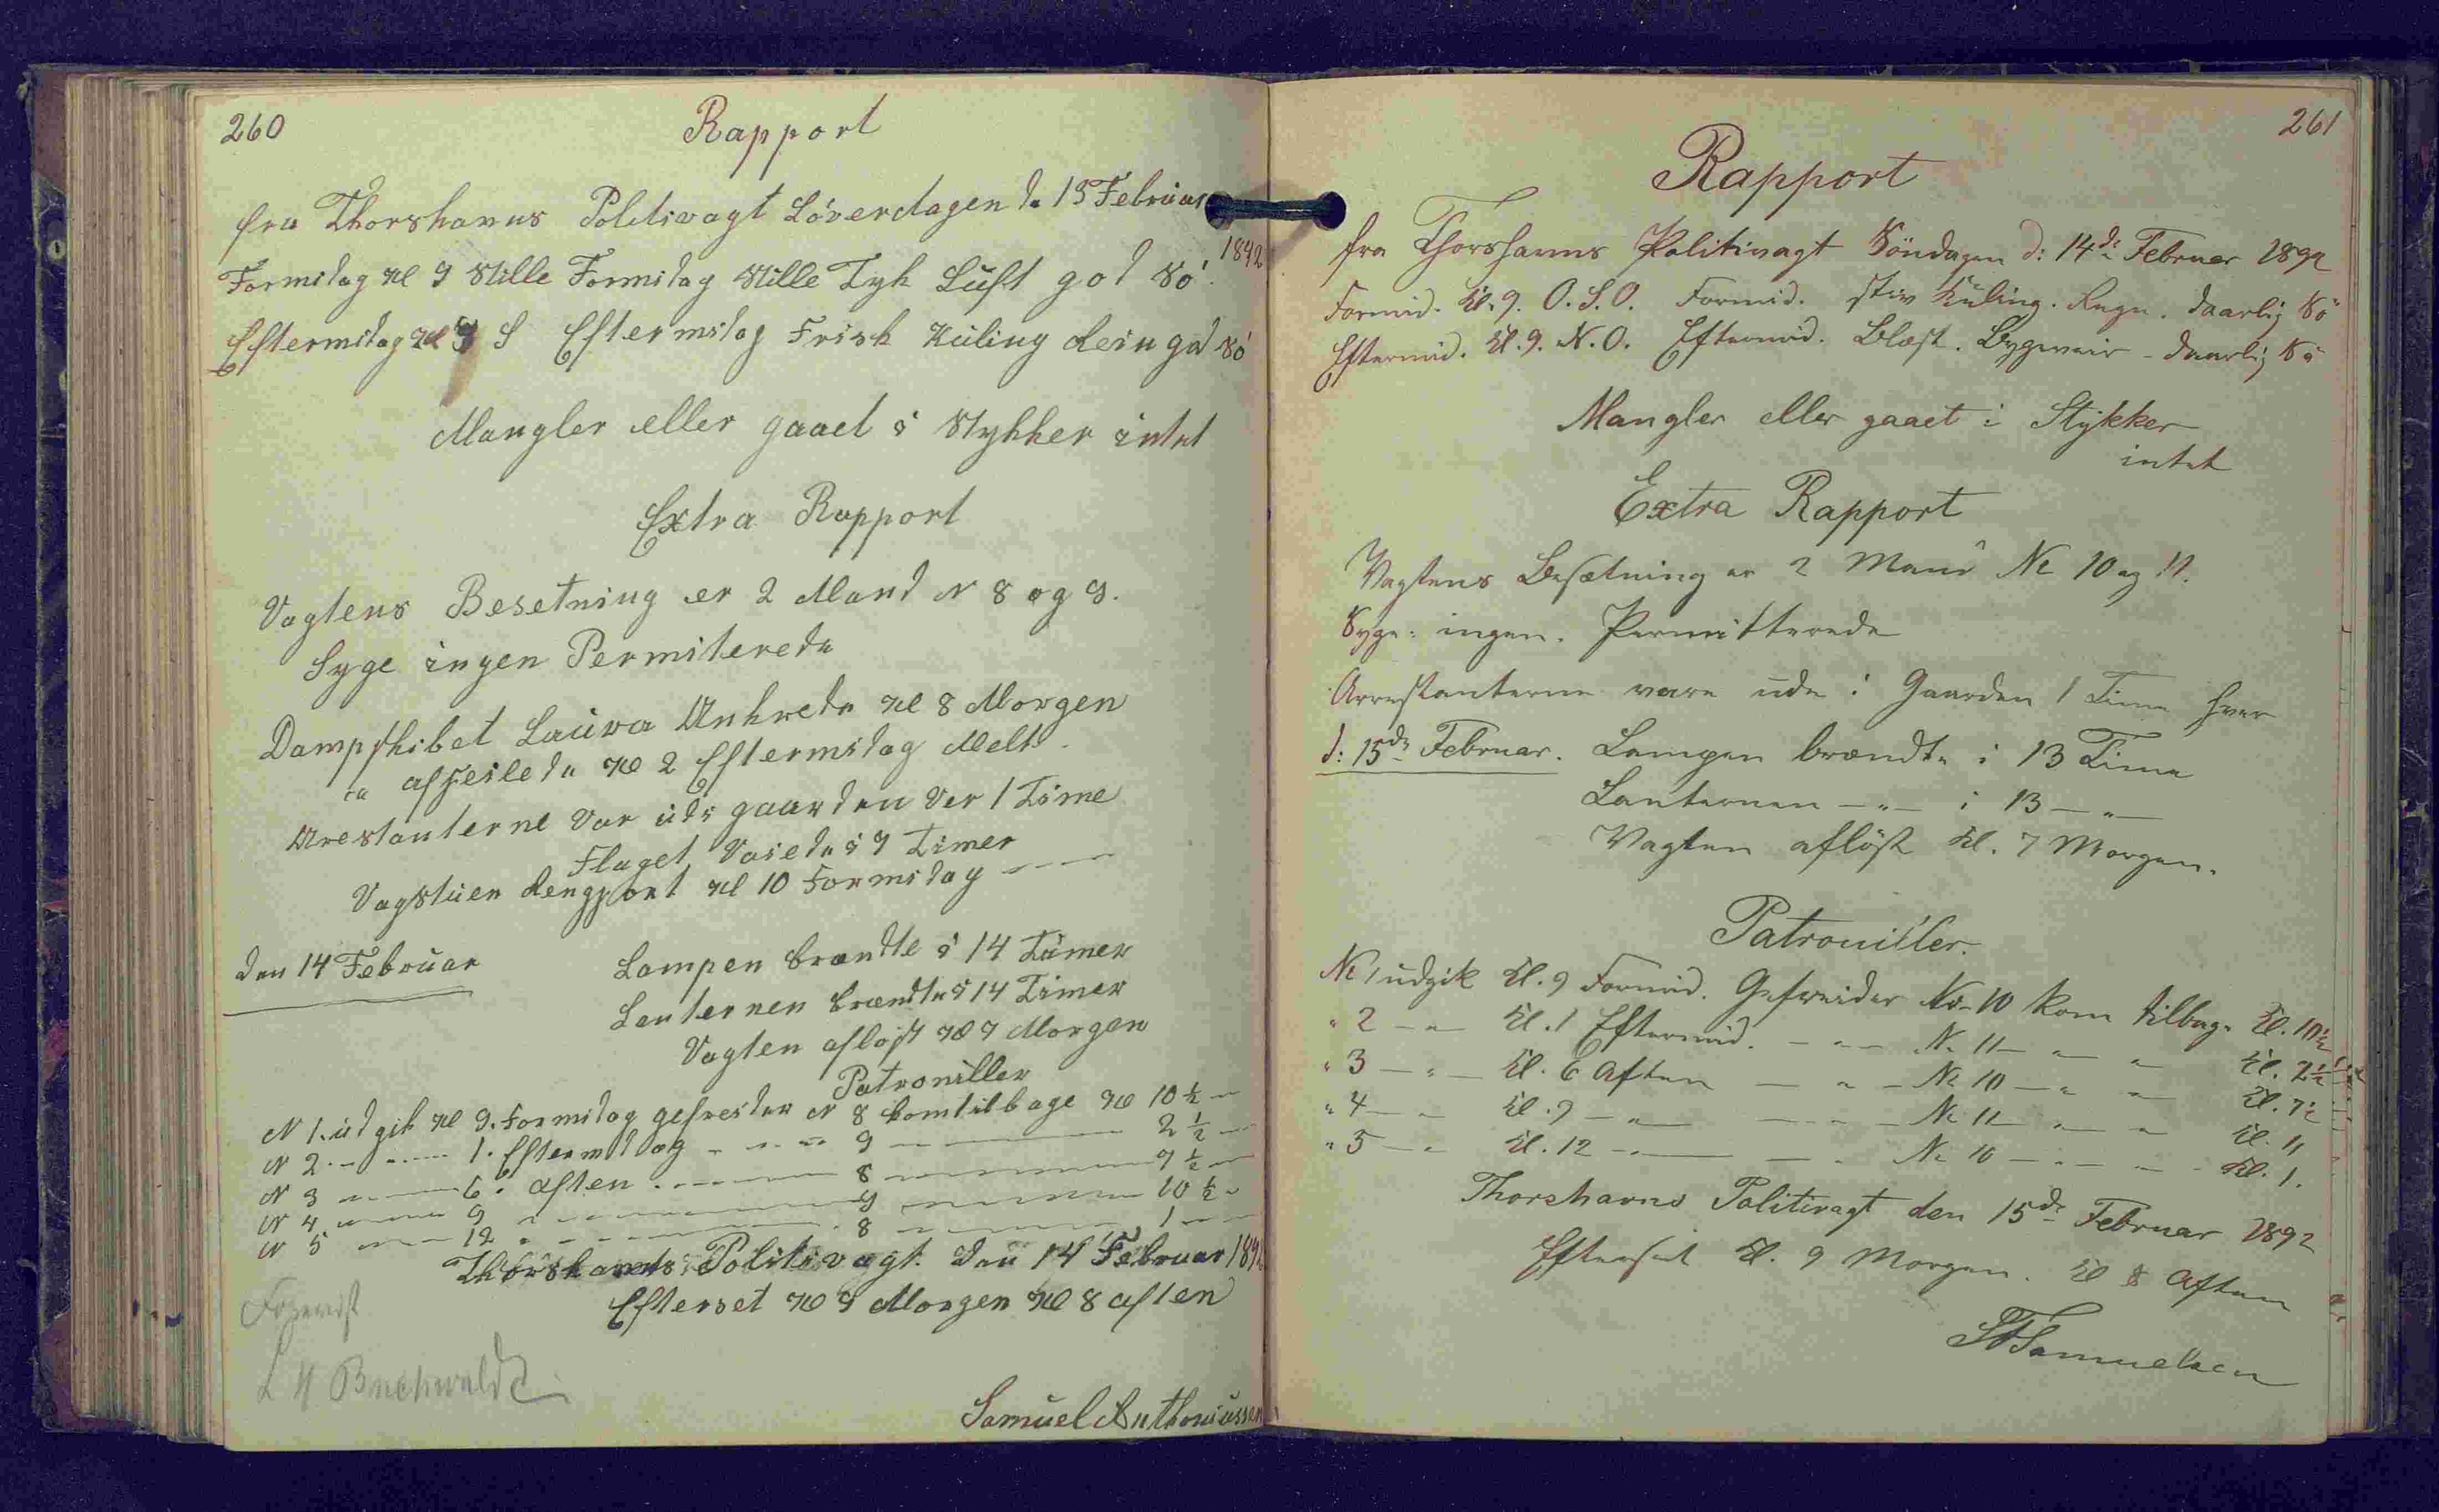 260
Rapport
fra Thorshavns Politivagt Löverdagen de 13 Februar
1892
Formidag Kl 9 Stille Formidag Stille Tyk Luft god Sö.
Eftermidag Kl 9 S Eftermidag Frisk Kuling Rein god Sö
Mangler eller gaaet i Stykker intet
Extra Rapport
Vagtens Besetning er 2 Mand N 8 og 9.
Syge ingen Permiterede
Dampskibet Laura Ankrede Kl 8 Morgen
" afseilede Kl 2 Eftermidag Melt.
Arestanterne Var ude i gaarden Ver 1 Time
Flaget Vaiede i 9 Timer
Vagstuen Rengjort Kl 10 Formidag
den 14 Februar Lampen brændte i 14 Timer
Lanternen brændte i 14 Timer
Vagten afløst Kl 7 Morgen
Patrouiller
N 1. udgik Kl 9. Formidag gefreider N 8 kom tilbage Kl 10 ½
N 2. 1. Eftermidag 9 2 ½
N 3 6. aften 8 7 ½
N 4. 9 9 10 ½
N 5 12 8 1
Thorshavns Politivagt. den 14 Februar 1892
Efterset Kl 9 Morgen Kl 8 aften
Forevist
L H Buchwaldt
Samuel Anthoniussen
261
Rapport
fra Thorshavns Politivagt Söndagen d: 14de Februar 1892
Formid. Kl. 9. O.S.O. Formid. stiv Kuling. Regn. daarlig Sö
Eftermid. Kl. 9. N.O. Eftermid. Blæst. Bygeveir - daarlig Sö
Mangler eller gaaet i Stykker
intet
Extra Rapport
Vagtens Besætning er 2 Mand No 10 og 11.
Syge: ingen. Permitterede
Arrestanterne vare ude i Gaarden 1 Time hver
d: 15de Februar. Lampen brændte i 13 Time
Lanternen - " - i 13 - " -
Vagten aflöst Kl. 7 Morgen.
Patrouiller.
No 1 udgik Kl. 9 Formid. Gefreider No 10 kom tilbage Kl. 10½
" 2 - " - Kl. 1 Eftermid. - " - No 11 - " - " Kl. 2½
" 3 - " - Kl. 6 Aften - " - No 10 - " - " Kl. 7½
" 4 - " - Kl. 9 - " - - " - No 11 - " - " Kl. 11
" 5 - " - Kl. 12 - " - - " - No 10 - " - " - Kl. 1.
Thorshavns Politivagt den 15de Februar 1892
Efterset Kl. 9 Morgen. Kl 8 Aften
Samuelsen